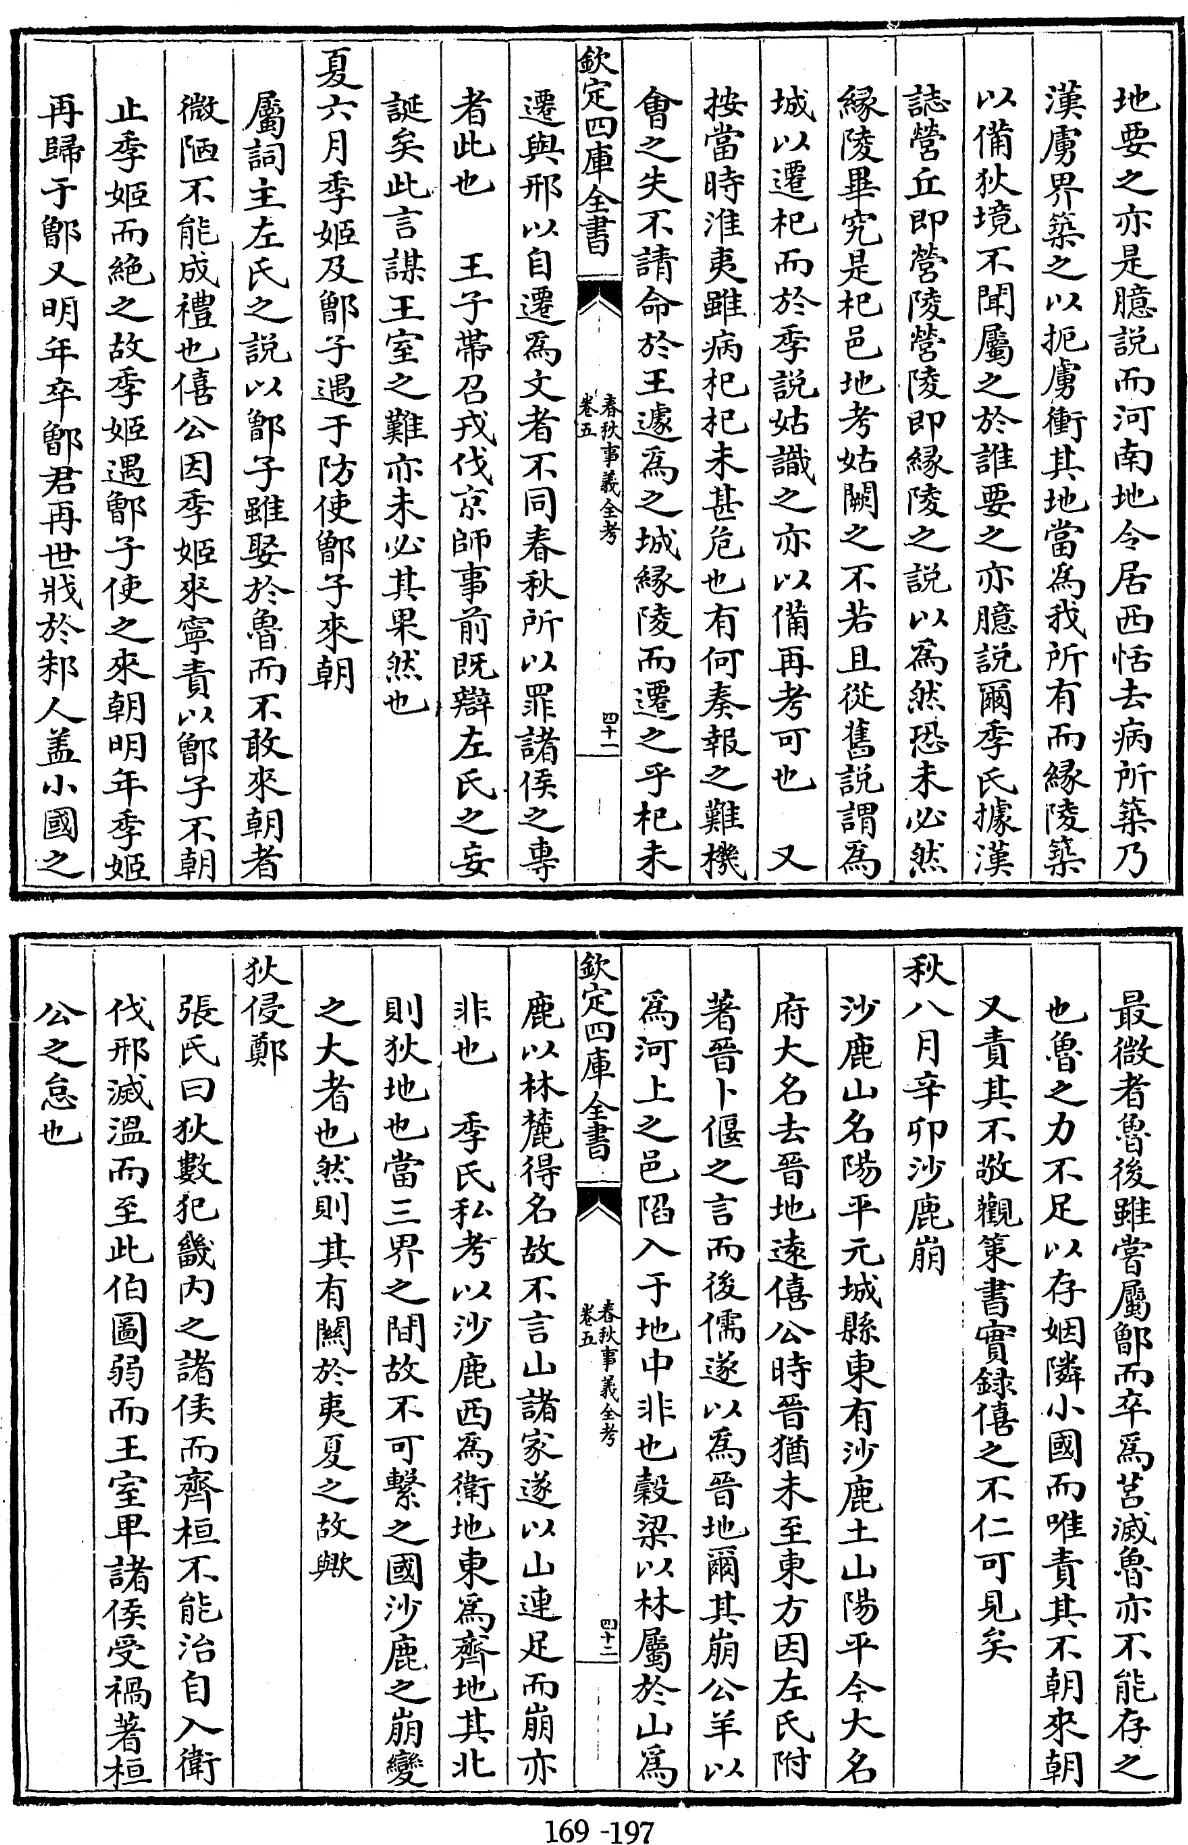 地要之亦是臆説而河南地令居西恬去病所築乃
漢虜界築之以扼虜衝其地當爲我所有而縁陵築
以備狄境不聞屬之於誰要之亦臆説爾季氏據漢
誌營丘即營陵營陵即縁陵之説以爲然恐未必然
縁陵畢究是杞邑地考姑闕之不若且從舊説謂爲
城以遷杞而於季説姑識之亦以備再考可也　又
按當時淮夷雖病杞杞未甚危也有何奏報之難機
會之失不請命於王遽爲之城縁陵而遷之乎杞未
欽定四庫全書
春秋事義全考
卷五
四十一
遷與邢以自遷爲文者不同春秋所以罪諸侯之專
者此也　王子帶召戎伐京師事前既辯左氏之妄
誕矣此言謀王室之難亦未必其果然也
夏六月季姬及鄫子遇于防使鄫子來朝
屬詞主左氏之説以鄫子雖娶於魯而不敢來朝者
微陋不能成禮也僖公因季姬來寧責以鄫子不朝
止季姬而絶之故季姬遇鄫子使之來朝明年季姬
再歸于鄫又明年卒鄫君再世戕於邾人盖小國之
最微者魯後雖嘗屬鄫而卒爲莒滅魯亦不能存之
也魯之力不足以存姻隣小國而唯責其不朝來朝
又責其不敬觀策書實録僖之不仁可見矣
秋八月辛卯沙鹿崩
沙鹿山名陽平元城縣東有沙鹿土山陽平今大名
府大名去晉地逺僖公時晉猶未至東方因左氏附
著晉卜偃之言而後儒遂以爲晉地爾其崩公羊以
爲河上之邑陷入于地中非也榖梁以林屬於山爲
欽定四庫全書
春秋事義全考
卷五
四十二
鹿以林麓得名故不言山諸家遂以山連足而崩亦
非也　季氏私考以沙鹿西爲衛地東爲齊地其北
則狄地也當三界之間故不可繫之國沙鹿之崩變
之大者也然則其有關於夷夏之故歟
狄侵鄭
張氏曰狄數犯畿内之諸侯而齊桓不能治自入衛
伐邢滅溫而至此伯圖弱而王室卑諸侯受禍著桓
公之怠也
169-197